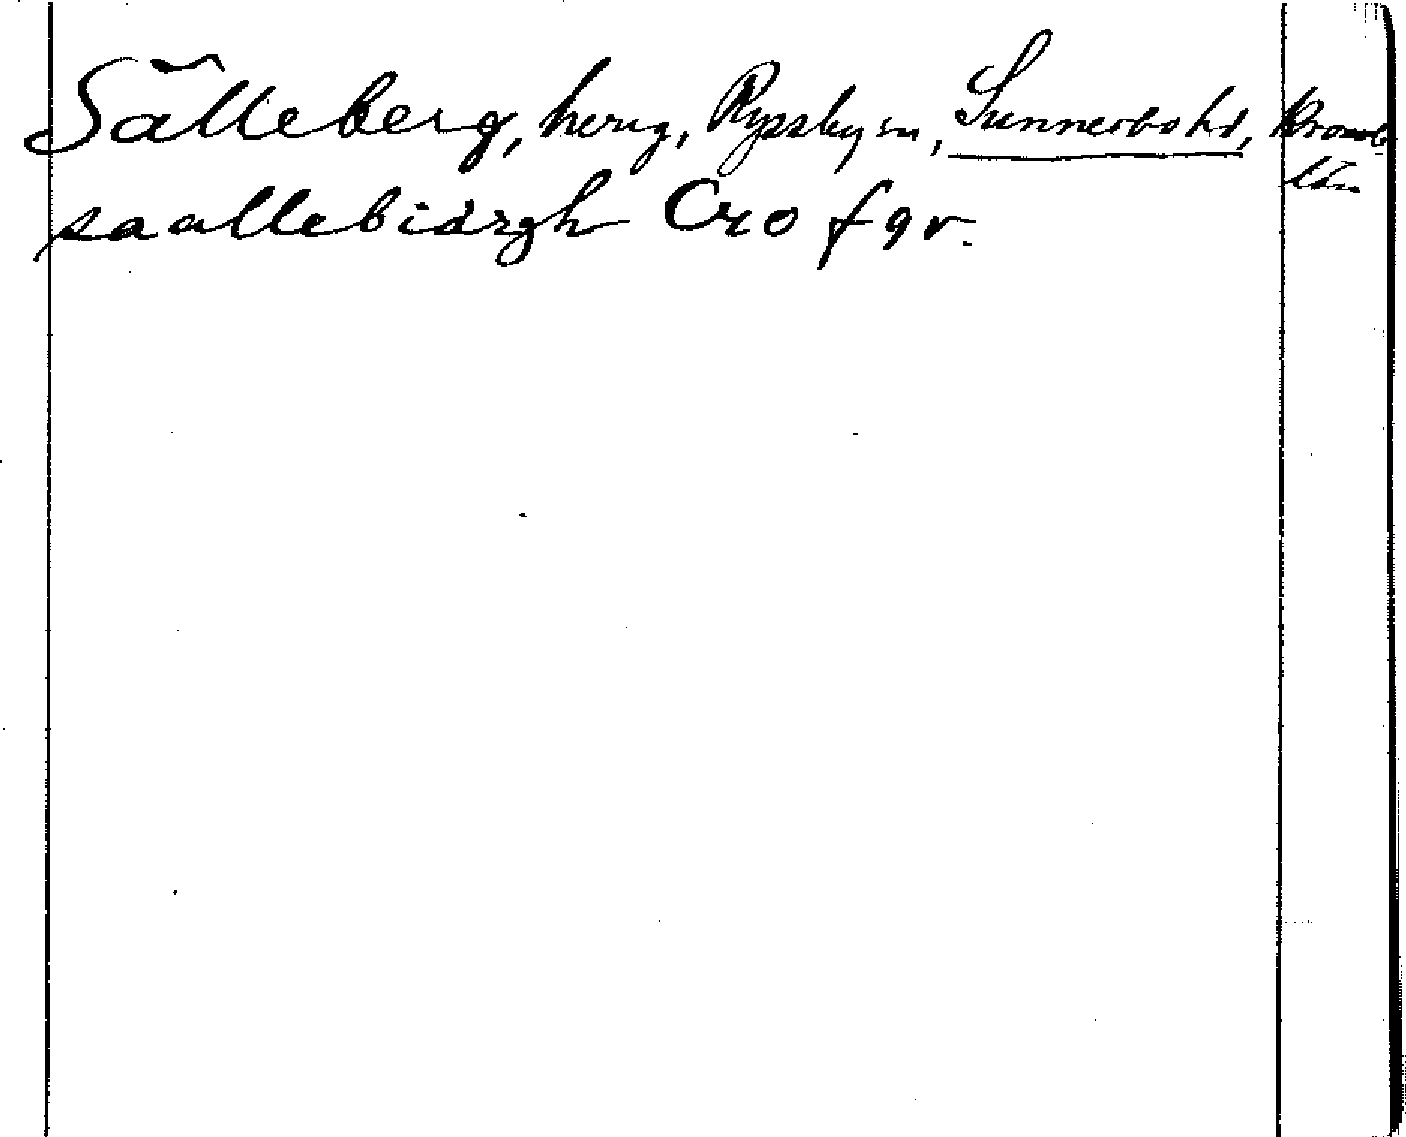 Sälleberg, herug, Ryssby sn, Sunnerbo hd, Kronob
län
saallebiärgh Cro f 9 v.